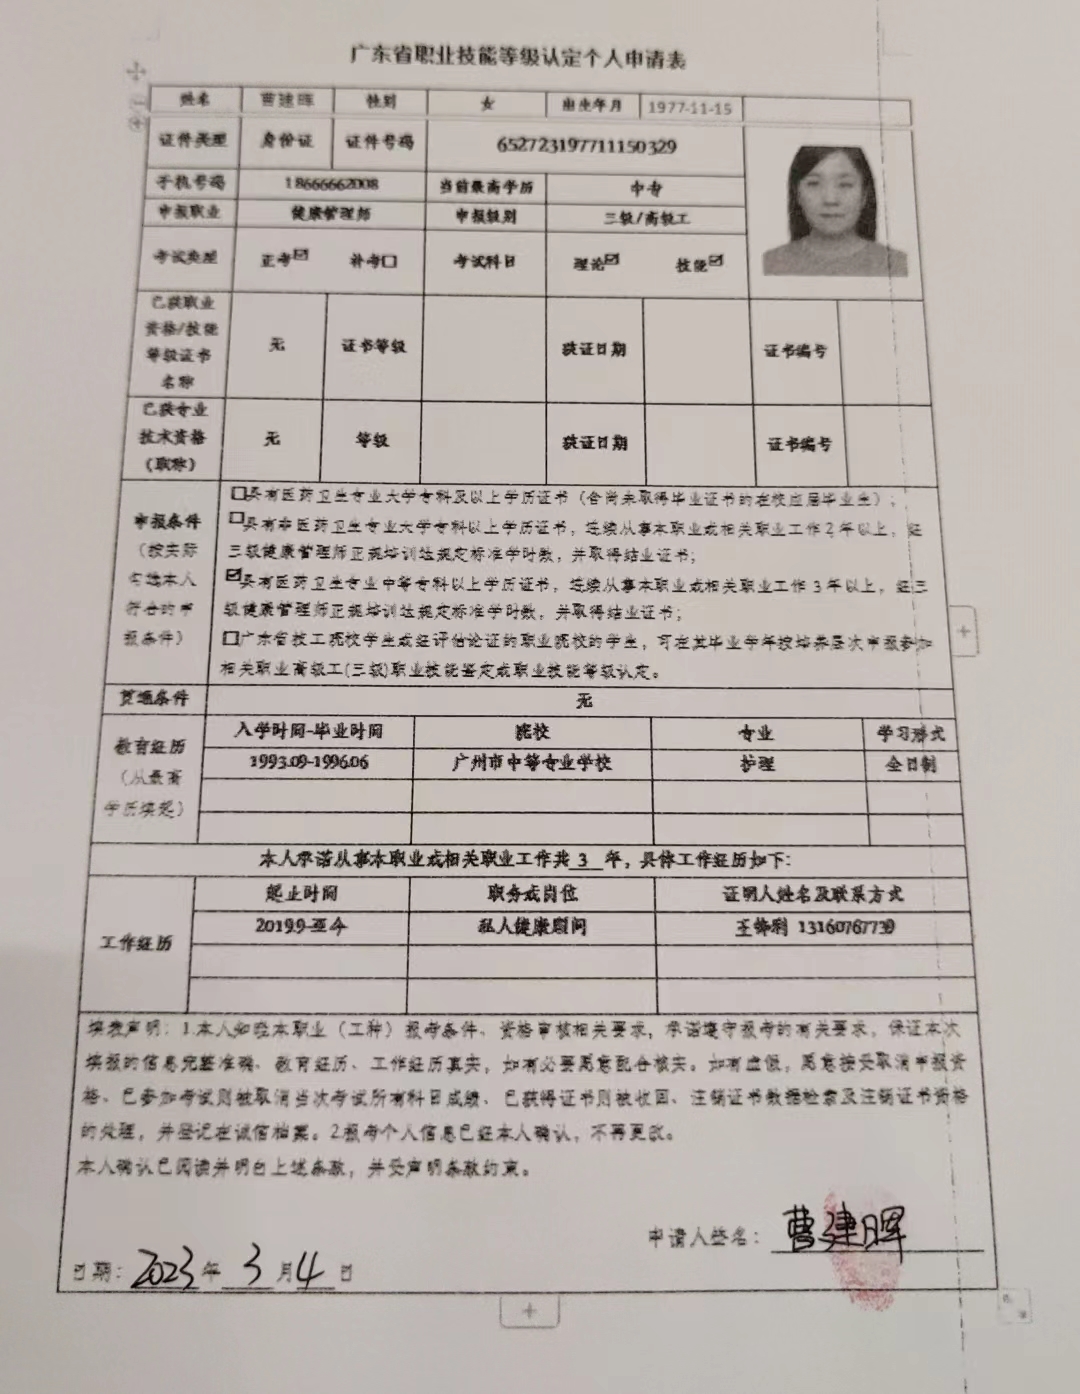 广东省职业技能等级认定个人申请表
姓名 曹建晖 性别 女 出生年月 1977-11-15
证件类型 身份证 证件号码 652723197711150329
手机号码 18666662008 当前最高学历 中专
申报职业 健康管理师 申报级别 三级/高级工
考试类型 正考☑ 补考☐ 考试科目 理论☑ 技能☑
已获职业
资格/技能
等级证书
名称
无 证书等级 获证日期 证书编号
已获专业
技术资格
（职称）
无 等级 获证日期 证书编号
申报条件
（按实际
勾选本人
符合的申
报条件）
☐具有医药卫生专业大学专科及以上学历证书（含尚未取得毕业证书的在校应届毕业生）；
☐具有非医药卫生专业大学专科以上学历证书，连续从事本职业或相关职业工作2年以上，经
三级健康管理师正规培训达规定标准学时数，并取得结业证书；
☑具有医药卫生专业中等专科以上学历证书，连续从事本职业或相关职业工作3年以上，经三
级健康管理师正规培训达规定标准学时数，并取得结业证书；
☐广东省技工院校学生或经评估论证的职业院校的学生，可在其毕业学年按培养层次申报参加
相关职业高级工(三级)职业技能鉴定或职业技能等级认定。
贯通条件 无
教育经历
（从最高
学历填起）
入学时间-毕业时间 院校 专业 学习形式
1993.09-1996.06 广州市中等专业学校 护理 全日制
本人承诺从事本职业或相关职业工作共 3 年，具体工作经历如下：
工作经历
起止时间 职务或岗位 证明人姓名及联系方式
2019.9-至今 私人健康顾问 13160767739
填表声明：1.本人知晓本职业（工种）报考条件、资格审核相关要求，承诺遵守报考的有关要求，保证本次
填报的信息完整准确、教育经历、工作经历真实，如有必要愿意配合核实。如有虚假，愿意接受取消申报资
格、已参加考试则被取消当次考试所有科目成绩、已获得证书则被收回、注销证书数据检索及注销证书资格
的处理，并登记在诚信档案。2.报考个人信息已经本人确认，不再更改。
本人确认已阅读并明白上述条款，并受声明条款约束。
申请人签名：曹建晖
日期：2023年3月4日